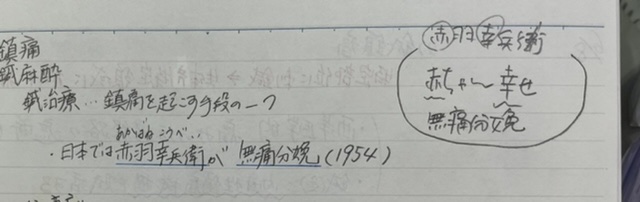 鎮痛
鍼麻酔
鍼治療…鎮痛を起こす手段の一つ
あかばねこうべ..
・日本では赤羽幸兵衛が 無痛分娩(1954)
赤羽幸兵衛
赤ちゃん 幸せ
無痛分娩